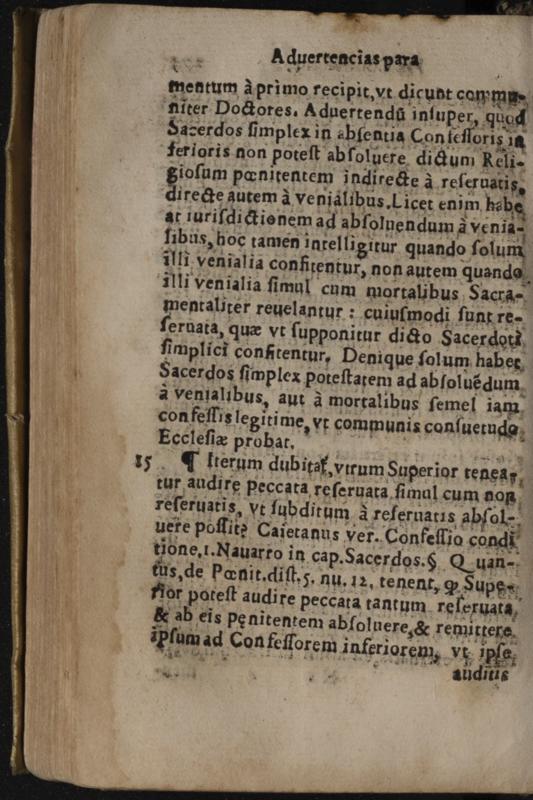 Aduertencias para
mentum à primo recipit, vt dicunt commu-
niter Doctores. Aduertendũ insuper, quod
Sacerdos simplex in absentia Confessoris in
ferioris non potest absoluere dictum Reli-
giosum pœnitentem indirecte à reseruatis,
directe autem à venialibus. Licet enim habe
at iurisdictionem ad absoluendum à venia-
libus, hoc tamen intelligitur quando solum
illi venialia confitentur, non autem quando
illi venialia simul cum mortalibus Sacra-
mentaliter reuelantur: cuiusmodi sunt re-
seruata, quæ vt supponitur dicto Sacerdoti
simplici confitentur. Denique solum habet
Sacerdos simplex potestatem ad absoluẽdum
à venialibus, aut à mortalibus semel iam
confessis legitime, vt communis consuetudo
Ecclesiæ probat.
15 ¶ Iterum dubitat, vtrum Superior tenea-
tur audire peccata reseruata simul cum non
reseruatis, vt subditum à reseruatis absol-
uere possit? Caietanus ver. Confessio condi
tione. 1. Nauarro in cap. Sacerdos. §. Quan-
tus, de Pœnit. dist. 5. nu. 12. tenent, ꝙ Supe-
rior potest audire peccata tantum reseruata,
& ab eis pęnitentem absoluere, & remittere
ipsum ad Confessorem inferiorem, vt ipse
auditis